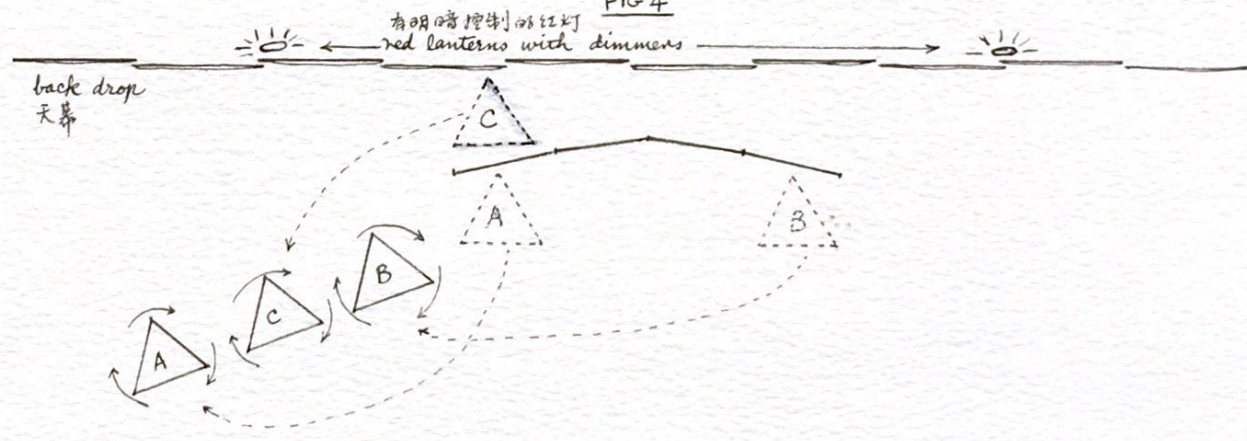 FIG 4
有明暗控制的红灯
red lanterns with dimmers
back drop
天幕
C
A
B
B
C
A